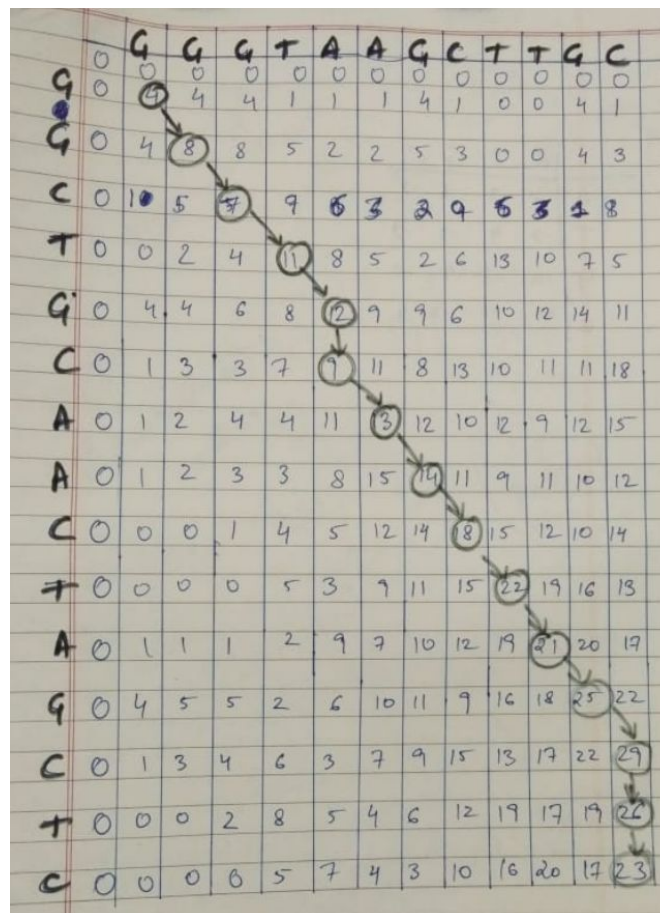 G G G T A A G C T T G C
0 0 0 0 0 0 0 0 0 0 0 0 0
G 0 4 4 1 1 1 4 1 0 0 4 1
G 0 4 8 8 5 2 2 5 3 0 0 4 3
C 0 1 5 7 9 2 9 8
T 0 0 2 4 11 8 5 2 6 13 10 7 5
G 0 4 4 6 8 12 9 9 6 10 12 14 11
C 0 1 3 3 7 9 11 8 13 10 11 11 18
A 0 1 2 4 4 11 3 12 10 12 9 12 15
A 0 1 2 3 3 8 15 14 11 9 11 10 12
C 0 0 0 1 4 5 12 14 18 15 12 10 14
T 0 0 0 0 5 3 9 11 15 22 19 16 13
A 0 1 1 1 2 9 7 10 12 19 21 20 17
G 0 4 5 5 2 6 10 11 9 16 18 25 22
C 0 1 3 4 6 3 7 9 15 13 17 22 29
T 0 0 0 2 8 5 4 6 12 19 17 19 26
C 0 0 0 0 5 7 4 3 10 16 20 17 23